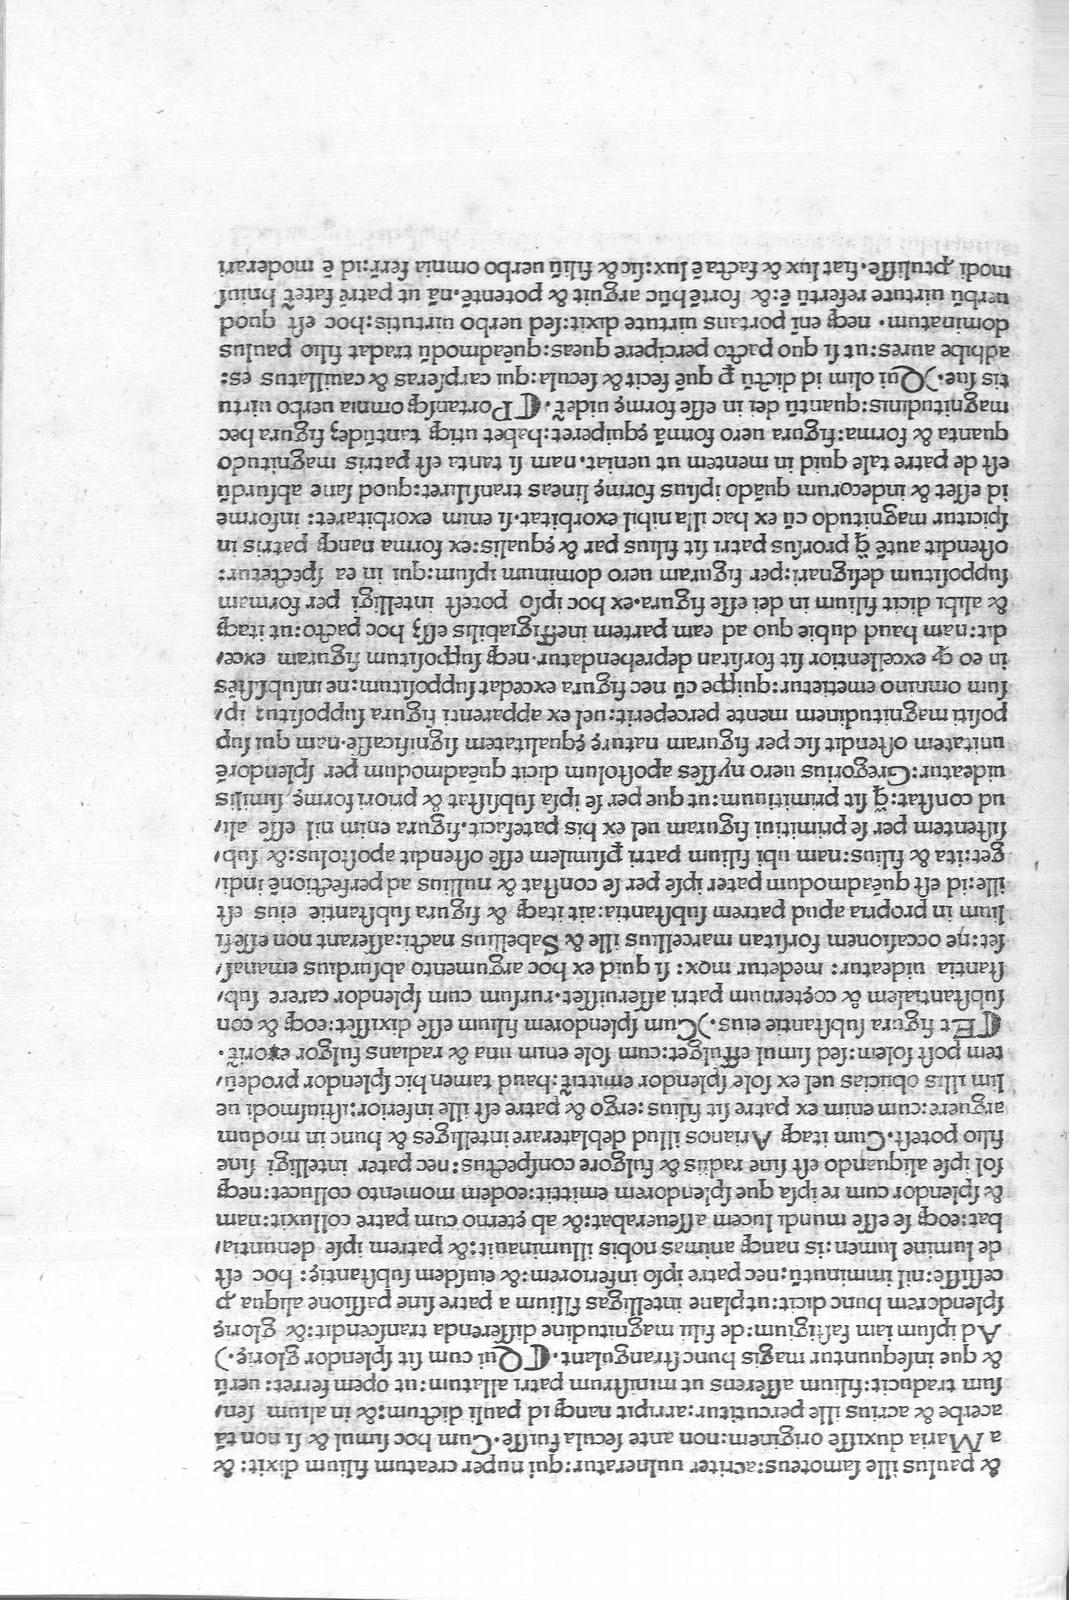 & paulus ille samoteus:acriter uulneratur:qui nuper creatum filium dixit: &
a Maria duxisse originem:non ante secula fuisse.Cum hoc simul & si non tã
acerbe & acrius ille percutitur:arripit nanq̃ id pauli dictum:& in alium sen/
sum traducit:filium asserens ut ministrum patri allatum:ut opem ferret: uerũ
& que insequuntur magis hunc strangulant.⸿Qui cum sit splendor glorię.)
Ad ipsum iam fastigium:de filii magnitudine disserenda transcendit:& glorię
splendorem hunc dicit:ut plane intelligas filium a patre sine passione aliqua ꝓ
cessisse:nil imminutũ:nec patre ipso inferiorem:& eiusdem substantię: hoc est
de lumine lumen:is nanq̃ animas nobis illuminauit:& patrem ipse denuntia/
bat:eoq̃ se esse mundi lucem asseuerabat:& ab ęterno cum patre colluxit:nam
& splendor cum re ipsa que splendorem emittit:eodem momento collucet:neq̃
sol ipse aliquando est sine radiis & fulgore conspectus:nec pater intelligi sine
filio potest.Cum itaq̃ Arianos illud deblaterare intelliges & hunc in modum
arguere:cum enim ex patre sit filius:ergo & patre est ille inferior:istiusmodi ue
lim illis obucias uel ex sole splendor emittit̃:haud tamen hic splendor prodeũ/
tem post solem:sed simul effulget:cum sole enim una & radians fulgor exorit̃.
⸿Et figura substantie eius.)Cum splendorem filium esse dixisset:eoq̃ & con
substantialem & coęternum patri asseruisset.rursum cum splendor carere sub/
stantia uideatur: medetur mox: si quid ex hoc argumento absurdius emanas/
set:ne occasionem forsitan marcellius ille & Sabellius nacti:asserant non esse fi
lium in propria apud patrem substantia:ait itaq̃ & figura substantie eius est
ille:id est quẽadmodum pater ipse per se constat & nullius ad perfectionẽ indi/
get:ita & filius:nam ubi filium patri ꝑsimilem esse ostendit apostolus:& sub/
sistentem per se primitiui figuram uel ex his patefacit.figura enim nil esse ali/
ud constat:q̃ sit primitiuum:ut que per se ipsa subsistat & priori formę similis
uideatur:Gregorius uero nysses apostolum dicit quẽadmodum per splendorẽ
unitatem ostendit sic per figuram naturę ęqualitatem significasse.nam qui sup
positi magnitudinem mente perceperit:uel ex apparenti figura suppositũ: ip/
sum omnino emetietur:quippe cũ nec figura excedat suppositum:ne insubsistẽs
in eo q̃ excellentior sit forsitan deprehendatur.neq̃ suppositum figuram exce/
dit:nam haud dubie quo ad eam partem ineffigiabilis esset hoc pacto:ut itaq̃
& alibi dicit filium in dei esse figura.ex hoc ipso potest intelligi per formam
suppositum designari:per figuram uero dominum ipsum:qui in ea spectetur:
ostendit autẽ q̃ prorsus patri sit filius par & ęqualis:ex forma nanq̃ patris in
spicitur magnitudo cũ ex hac illa nihil exorbitat.si enim exorbitaret: informe
id esset & indecorum quãdo ipsius formę lineas transiliret:quod sane absurdũ
est de patre tale quid in mentem ut ueniat.nam si tanta est patris magnitudo
quanta & forma:figura uero formã ęquiperet:habet utiq̃ tantũdeꝫ figura hec
magnitudinis:quantũ dei in esse formę uidet̃.⸿Portansq̃ omnia uerbo uirtu
tis sue.)Qui olim id dictũ ꝑ quẽ fecit & secula:qui carpseras & cauillatus es:
adhibe aures:ut si quo pacto percipere queas:quẽadmodũ tradat filio paulus
dominatum. neq̃ enĩ portans uirtute dixit:sed uerbo uirtutis:hoc est quod
uerbũ uirtute refertũ ẽ:& fortẽ hũc arguit & potentẽ.nã ut patrẽ fatet̃ huius
modi ꝓtulisse.fiat lux & facta ẽ lux:sic & filiũ uerbo omnia ferr̃:id ẽ moderari